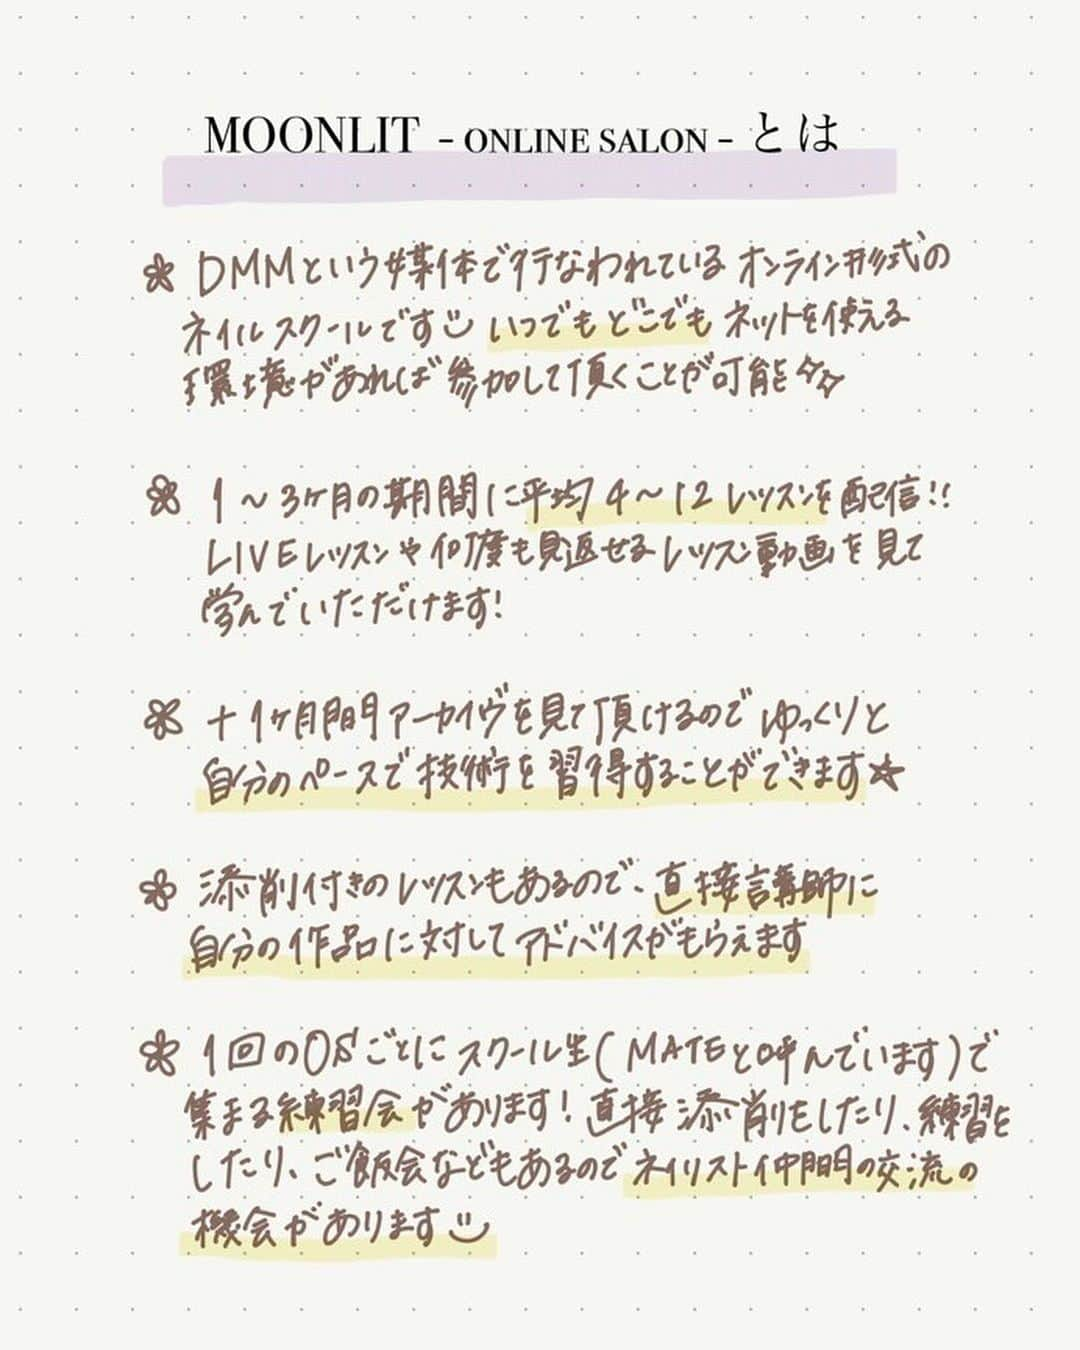 MOONLIT - ONLINE SALON - とは
DMMという媒体で行なわれているオンライン形式の
ネイルスクールです いつでもどこでもネットを使える
環境があれば参加して頂くことが可能
1～3ヶ月の期間に平均4～12レッスンを配信!!
LIVEレッスンや何度も見返せるレッスン動画を見て
学んでいただけます!
+1ヶ月間アーカイヴを見て頂けるのでゆっくりと
自分のペースで技術を習得することができます★
添削付きのレッスンもあるので、直接講師に
自分の作品に対してアドバイスがもらえます
1回のOSごとにスクール生(MATEと呼んでいます)で
集まる練習会があります!直接添削をしたり、練習を
したり、ご飯会などもあるのでネイリスト仲間の交流の
機会があります